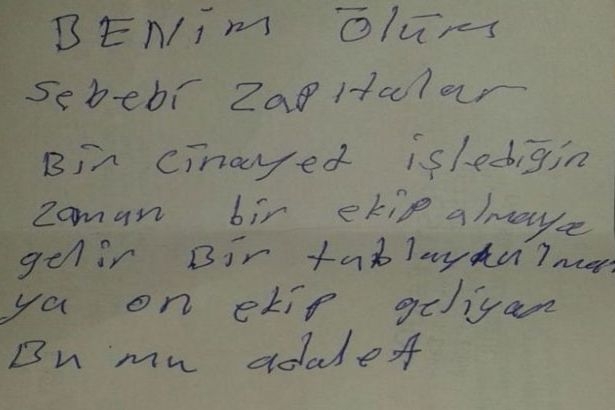 BENİM ÖlÜm
Sebebi Zapıtalar
Bir cinayet işlediğin
zaman bir ekip almaya
gelir Bir tablayı almaya
ya on ekip geliyor
Bu mu adalet